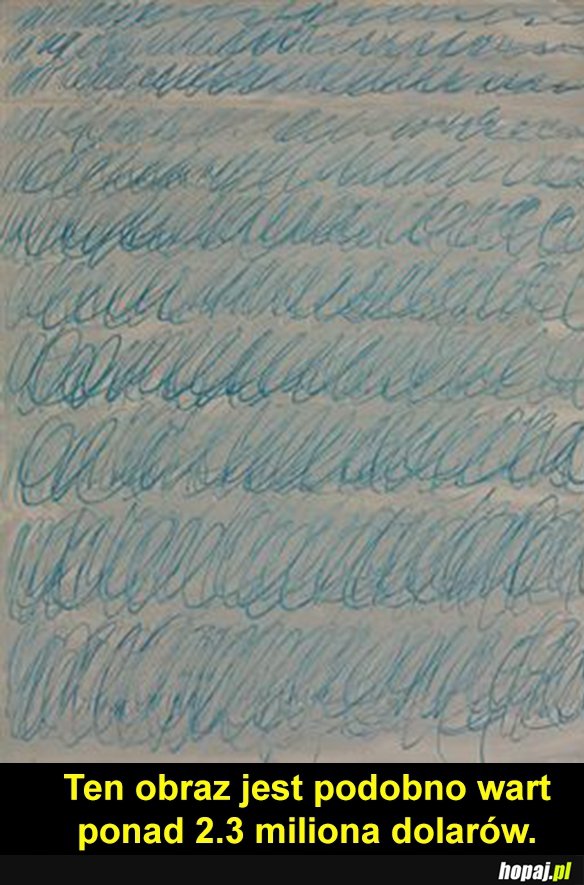 Ten obraz jest podobno wart
ponad 2.3 miliona dolarów.
hopaj.pl